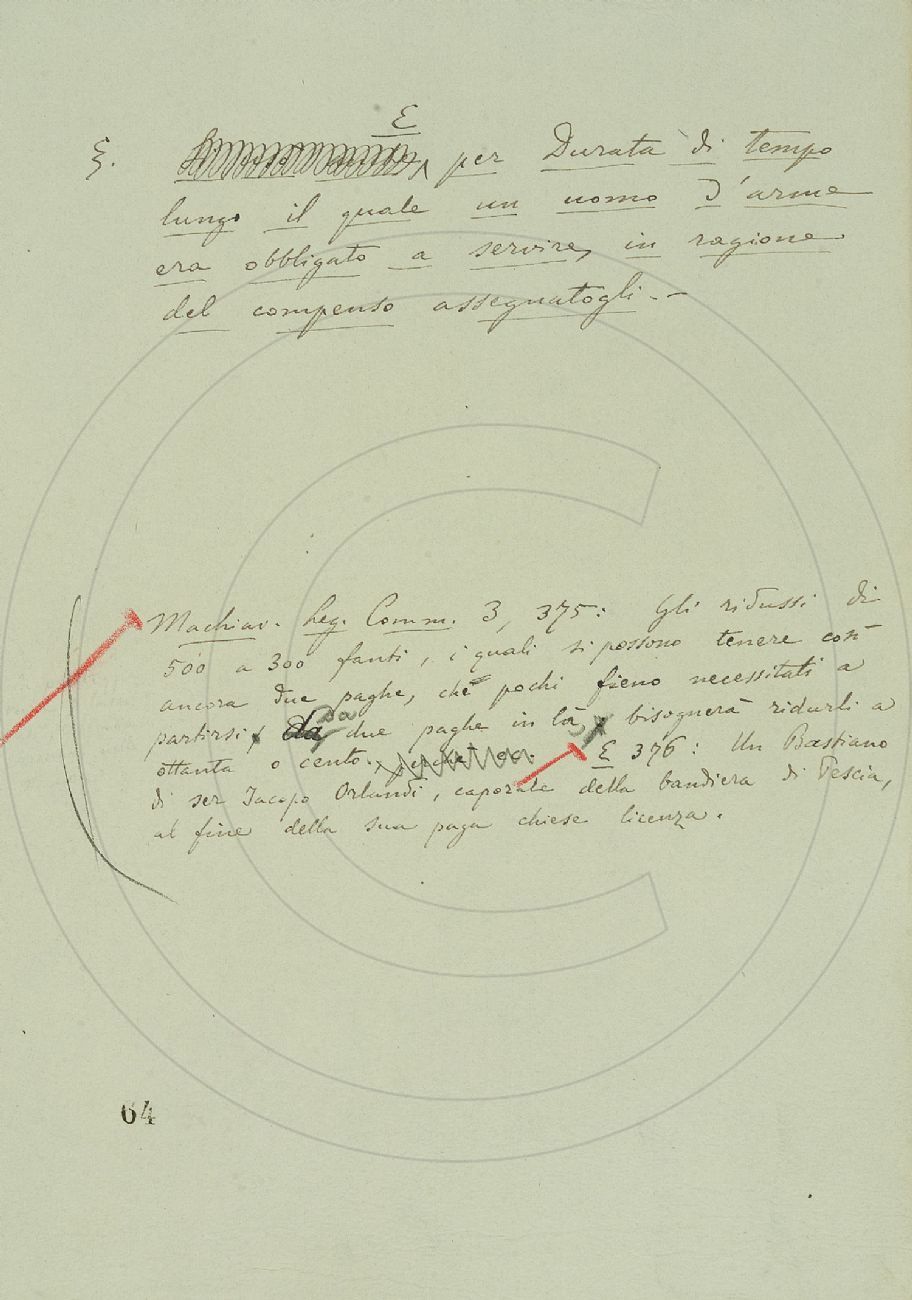 §. E per Durata di tempo
lungo il quale un uomo d'arme
era obbligato a servire, in ragione
del compenso assegnatogli. –
Machiav. Leg. Comm. 3, 375: Gli ridussi di
500 a 300 fanti, i quali si possono tenere così
ancora due paghe, chè pochi fieno necessitati a
partirsi; da due paghe in là, bisognerà ridurli a
ottanta o cento. E 376: Un Bastiano
di ser Iacopo Orlandi, caporale della bandiera di Pescia,
al fine della sua paga chiese licenza.
64